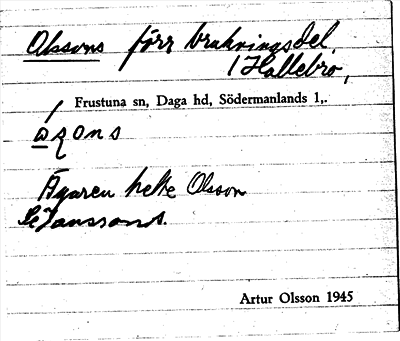 Olssons förr brukningsdel,
i Hallebro,
Frustuna sn, Daga hd, Södermanlands l,.
Ägaren hette Olsson
Se Janssons.
Artur Olsson 1945